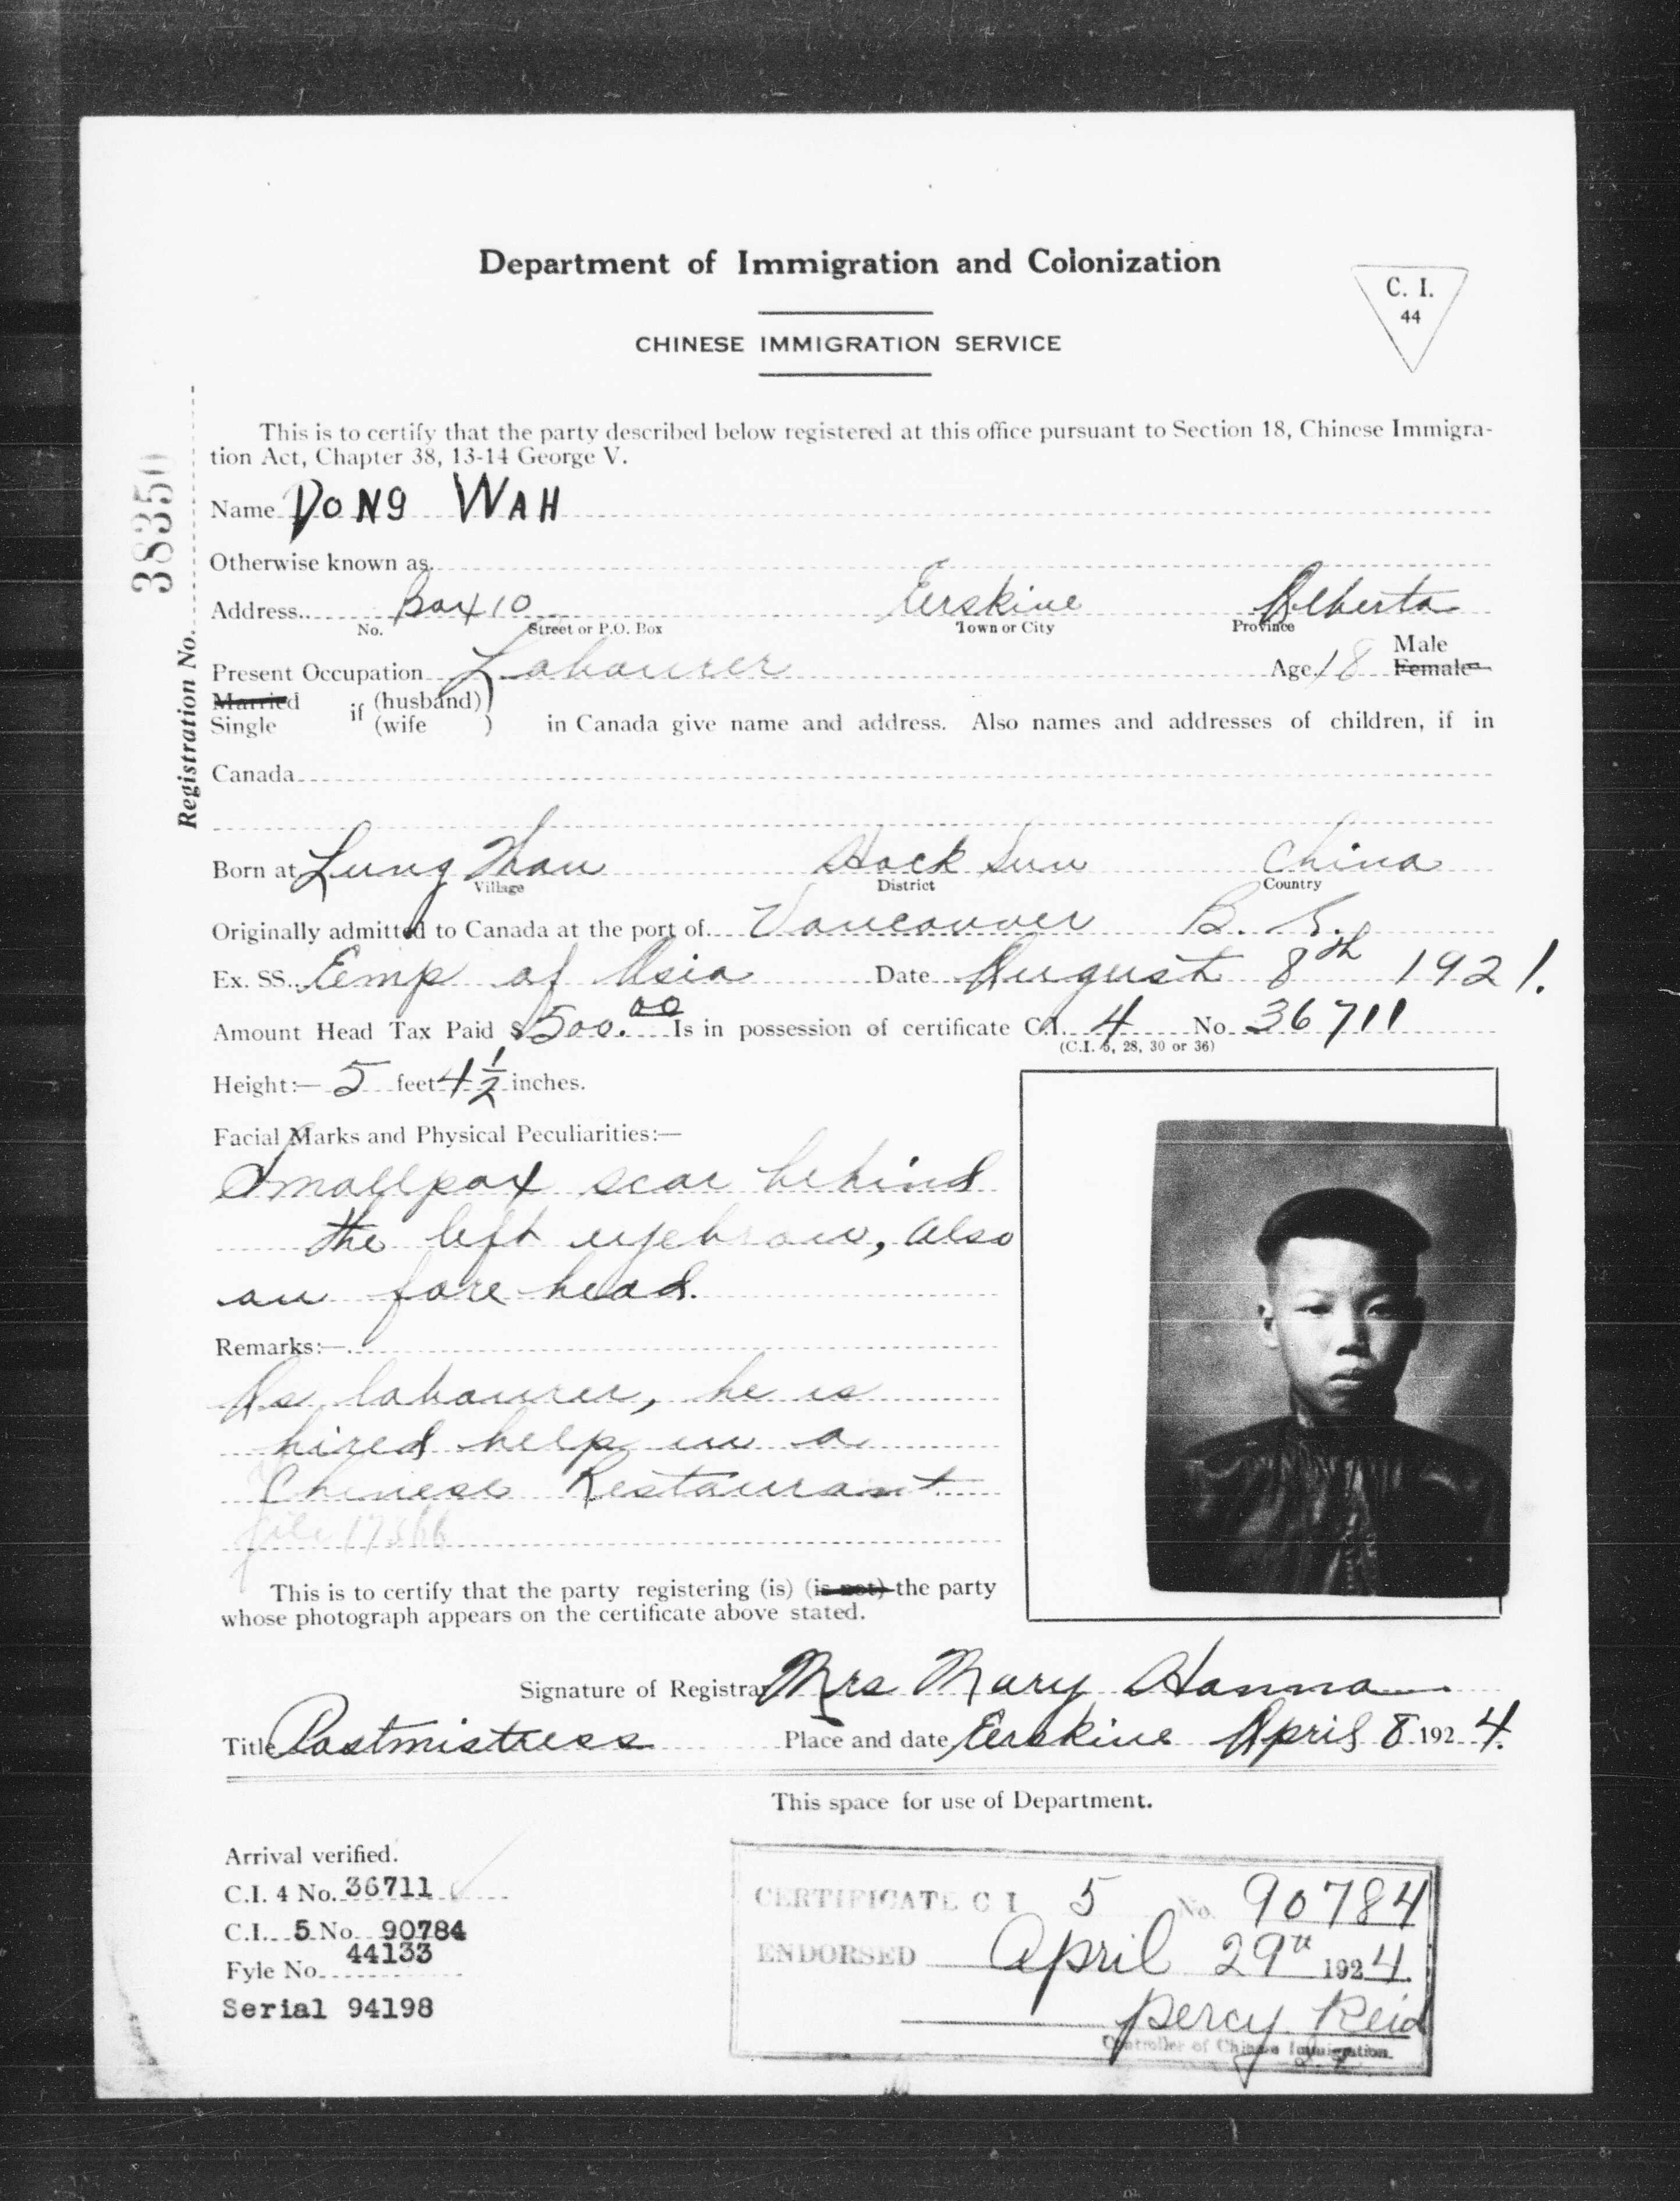 Department of Immigration and Colonization
C. I.
44
CHINESE IMMIGRATION SERVICE
This is to certify that the party described below registered at this office pursuant to Section 18, Chinese Immigra-
tion Act, Chapter 38, 13-14 George V.
Registration No. 38350
Name DONG WAH
Otherwise known as
Address Box 10 Erskine Alberta
No. Street or P.O. Box Town or City Province
Present Occupation Labourer Age 18 Male Female
Married
Single if (husband) (wife ) in Canada give name and address. Also names and addresses of children, if in
Canada
Born at Lung Hock Sun China
Village District Country
Originally admitted to Canada at the port of Vancouver B. C.
Ex. SS. Emp of Asia Date August 8th 1921.
Amount Head Tax Paid $ 500.00 Is in possession of certificate C.I. 4 No. 36711
(C.I. 5, 28, 30 or 36)
Height:— 5 feet 4 1/2 inches.
Facial Marks and Physical Peculiarities:—
Smallpox scar behind
the left eyebrow, also
on fore head.
Remarks:—
As labourer, he is
hired help in a
Chinese Restaurant
file
This is to certify that the party registering (is) (is not) the party
whose photograph appears on the certificate above stated.
Signature of Registrar Mrs Mary Hanna
Title Postmistress Place and date Erskine April 8 1924.
This space for use of Department.
Arrival verified.
C.I. 4 No. 36711
C.I. 5 No. 90784
Fyle No. 44133
Serial 94198
CERTIFICATE C I 5 No. 90784
ENDORSED April 29th 1924.
Percy Reid
Controller of Chinese Immigration.